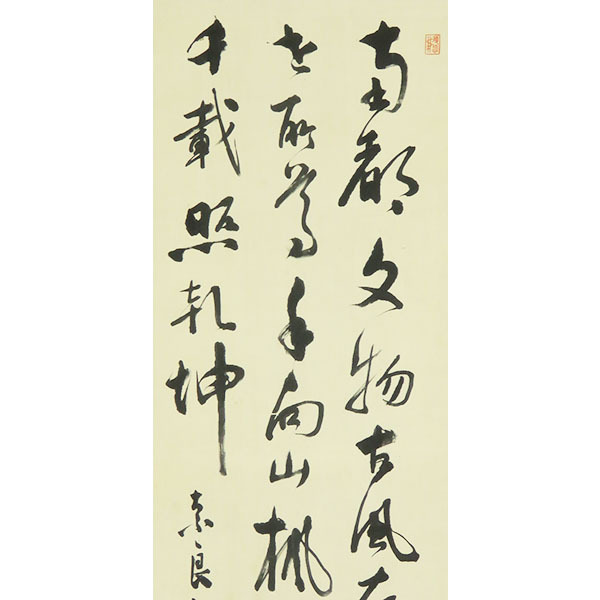 南都文物古風存
世所尊手向山楓
千載照乾坤
奈良